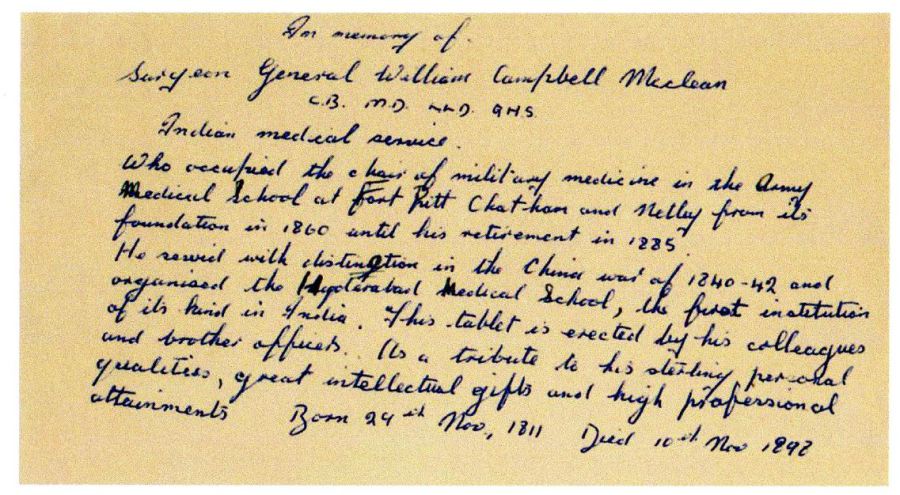 In memory of.
Surgeon General William Campbell Maclean
C.B. M.D. LL.D. QHS.
Indian medical service.
Who occupied the chair of military medicine in the Army
Medical School at Fort Pitt Chatham and Netley from its
foundation in 1860 until his retirement in 1885
He served with distinction in the China war of 1840-42 and
organised the Hyderabad Medical School, the first institution
of its kind in India. This tablet is erected by his colleagues
and brother officers. As a tribute to his sterling personal
qualities, great intellectual gifts and high professional
attainments Born 24th Nov, 1811 Died 10th Nov 1898